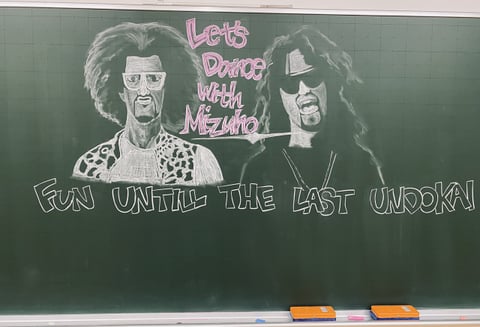 Let's
Dance
with
Mizuho
FUN UNTILL THE LAST UNDOKAI